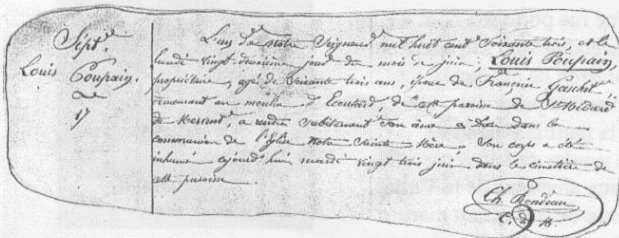 Sept.re
Louis Poupain.
De
17
L'an de notre Seigneur mil huit cent soixante trois, et le
lundi vingt-deuxième jour du mois de juin, Louis Poupain,
propriétaire, agé de soixante trois ans, époux de Françoise
demeurant au moulin d', de cette paroisse de St Médard
de, a rendu subitement son âme à Dieu dans la
communion de l'Eglise notre Sainte Mère. Son corps a été
inhumé aujourd'hui mardi vingt trois juin dans le cimetière de
cette paroisse.
Ch. Rondeau